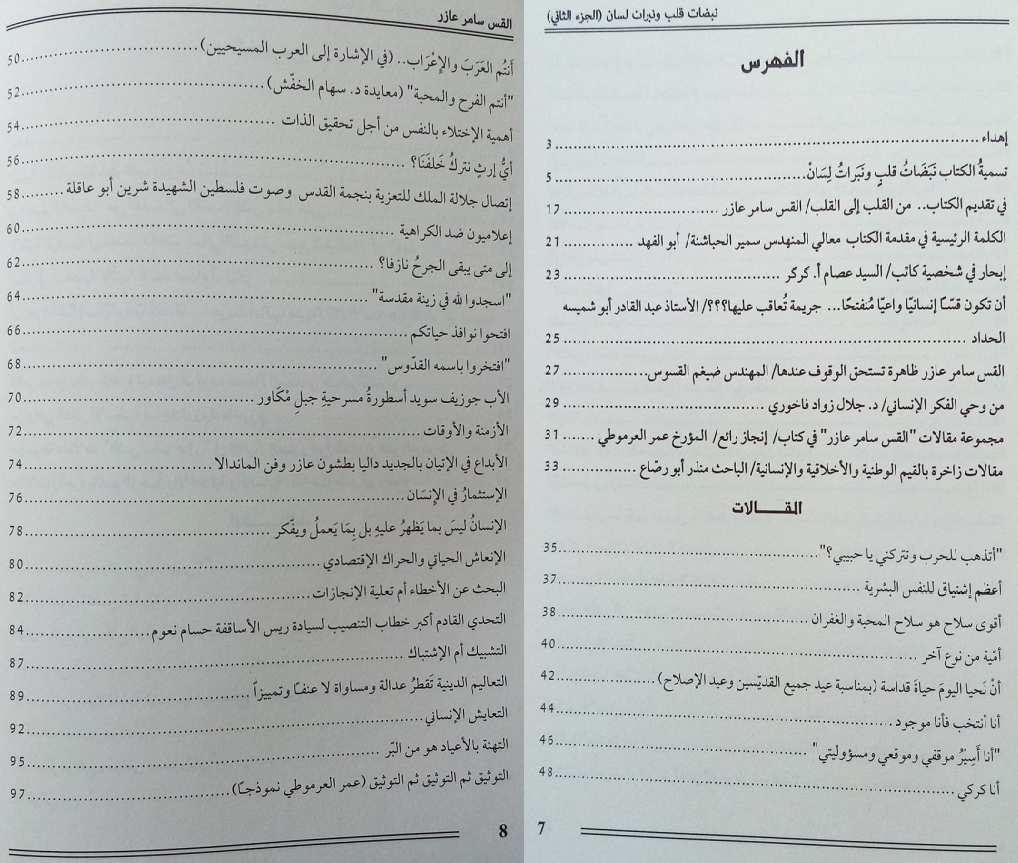 نبضات قلب ونبرات لسان (الجزء الثاني)
الفهرس
إهداء 3
تسميةُ الكتاب نَبَضَاتُ قلبٍ ونَبَراتُ لِسَانْ 5
في تقديم الكتاب.. من القلب إلى القلب/ القس سامر عازر 17
الكلمة الرئيسية في مقدمة الكتاب معالي المنهدس سمير الحباشنة/ أبو الفهد 21
إبحار في شخصية كاتب/ السيد عصام أ. كركر 23
أن تكون قسًا إنسانيًا واعيًا مُنفتحًا... جريمة تُعاقب عليها؟؟؟/ الأستاذ عبد القادر أبو شميسه
الحداد 25
القس سامر عازر ظاهرة تستحق الوقوف عندها/ المهندس ضيغم القسوس 27
من وحي الفكر الإنساني/ د. جلال زواد فاخوري 29
مجموعة مقالات "القس سامر عازر" في كتاب/ إنجاز رائع/ المؤرخ عمر العرموطي 31
مقالات زاخرة بالقيم الوطنية والأخلاقية والإنسانية/ الباحث منذر أبو رصّاع 33
المقـــالات
"أتذهب للحرب وتتركني يا حبيبي؟" 35
أعظم إشتياق للنفس البشرية 37
أقوى سلاح هو سلاح المحبة والغفران 38
أمّية من نوع آخر 40
أنْ نَحيا اليومَ حياةَ قداسة (بمناسبة عيد جميع القديّسين وعبد الإصلاح) 42
أنا أنتخب فأنا موجود 44
"أنا أَسِيْرُ موقفي وموقعي ومسؤوليتي" 46
أنا كركي 48
7
القس سامر عازر
أَنتُم العَرَبَ والإعْرَاب.. (في الإشارة إلى العرب المسيحيين) 50
"أنتم الفرح والمحبة" (معايدة د. سهام الخفّش) 52
أهمية الإختلاء بالنفس من أجل تحقيق الذات 54
أيُّ إرثٍ نتركُ خَلفَنَا؟ 56
إتصال جلالة الملك للتعزية بنجمة القدس وصوت فلسطين الشهيدة شرين أبو عاقلة 58
إعلاميون ضد الكراهية 60
إلى متى يبقى الجرحُ نازفا؟ 62
"اسجدوا لله في زينة مقدسة" 64
افتحوا نوافذ حياتكم 66
"افتخروا باسمه القدّوس" 68
الأب جوزيف سويد أسطورةُ مسرحيةِ جبلِ مْكَاوِر 70
الأزمنة والأوقات 72
الأبداع في الإتيان بالجديد داليا بطشون عازر وفن الماندالا 74
الإستثمارُ في الإِنسَان 76
الإنسانُ ليسَ بما يَظهرُ عليهِ بل بِمَا يَعملُ ويفّكر 78
الإنعاش الحياتي والحراك الإقتصادي 80
البحث عن الأخطاء أم تعلية الإنجازات 82
التحدي القادم أكبر خطاب التنصيب لسيادة ريس الأساقفة حسام نعوم 84
التشبيك أم الإشتباك 87
التعاليم الدينية تَقطرُ عدالة ومساواة لا عنفًا وتمييزاً 89
التعايش الإنساني 92
التهنة بالأعياد هو من البّر 95
التوثيق ثم التوثيق ثم التوثيق (عمر العرموطي نموذجًا) 97
8